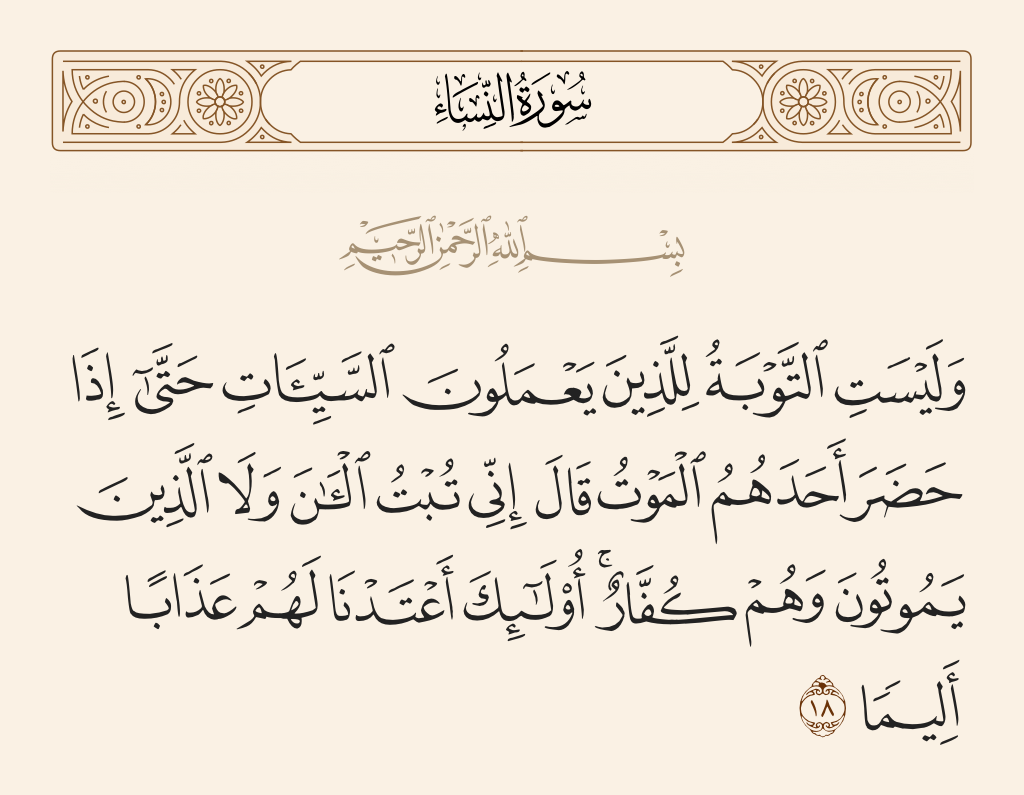 سُورَةُ النِّسَاءِ
بِسْمِ ٱللَّهِ ٱلرَّحْمَٰنِ ٱلرَّحِيمِ
وَلَيْسَتِ ٱلتَّوْبَةُ لِلَّذِينَ يَعْمَلُونَ ٱلسَّيِّـَٔاتِ حَتَّىٰٓ إِذَا
حَضَرَ أَحَدَهُمُ ٱلْمَوْتُ قَالَ إِنِّى تُبْتُ ٱلْـَٔـٰنَ وَلَا ٱلَّذِينَ
يَمُوتُونَ وَهُمْ كُفَّارٌ ۚ أُو۟لَـٰٓئِكَ أَعْتَدْنَا لَهُمْ عَذَابًا
أَلِيمًا ١٨